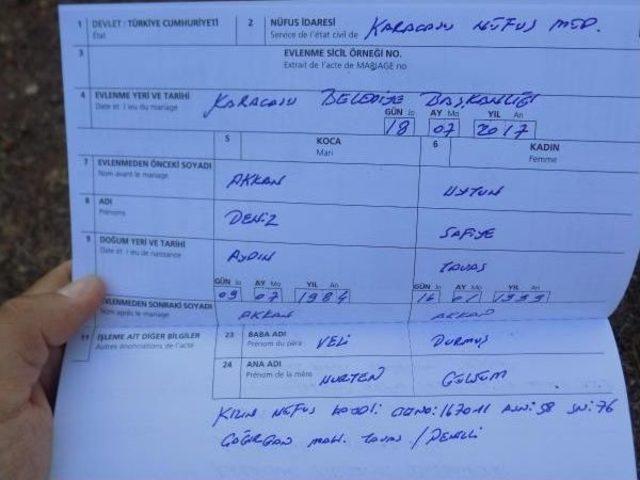 1 DEVLET : TÜRKİYE CUMHURİYETİ 2 NÜFUS İDARESİ KARACASU NÜFUS MÜD.
État Service de l'état civil de
3 EVLENME SİCİL ÖRNEĞİ NO.
Extrait de l'acte de MARIAGE no
4 EVLENME YERİ VE TARİHİ KARACASU BELEDİYE BAŞKANLIĞI
Date et lieu du mariage GÜN Jo AY Mo YIL An
18 07 2017
5 KOCA 6 KADIN
Mari Femme
7 EVLENMEDEN ÖNCEKİ SOYADI AKKAN UYTUN
Nom avant le mariage
8 ADI DENİZ SAFİYE
Prénoms
9 DOĞUM YERİ VE TARİHİ AYDIN TAVAS
Date et lieu de naissance
GÜN Jo AY Mo YIL An GÜN Jo AY Mo YIL An
09 07 1984 16 01 1999
EVLENMEDEN SONRAKİ SOYADI AKKAN AKKAN
Nom après le mariage
11 İŞLEME AİT DİĞER BİLGİLER 23 BABA ADI VELİ DURMUŞ
Autres énonciations de l'acte Prénom du père
24 ANA ADI NURTEN GÜLSÜM
Prénom de la mère
KIZIN NÜFUS KAYDI: 167011 ASN: 58 SN: 76
MAH. TAVAS / DENİZLİ